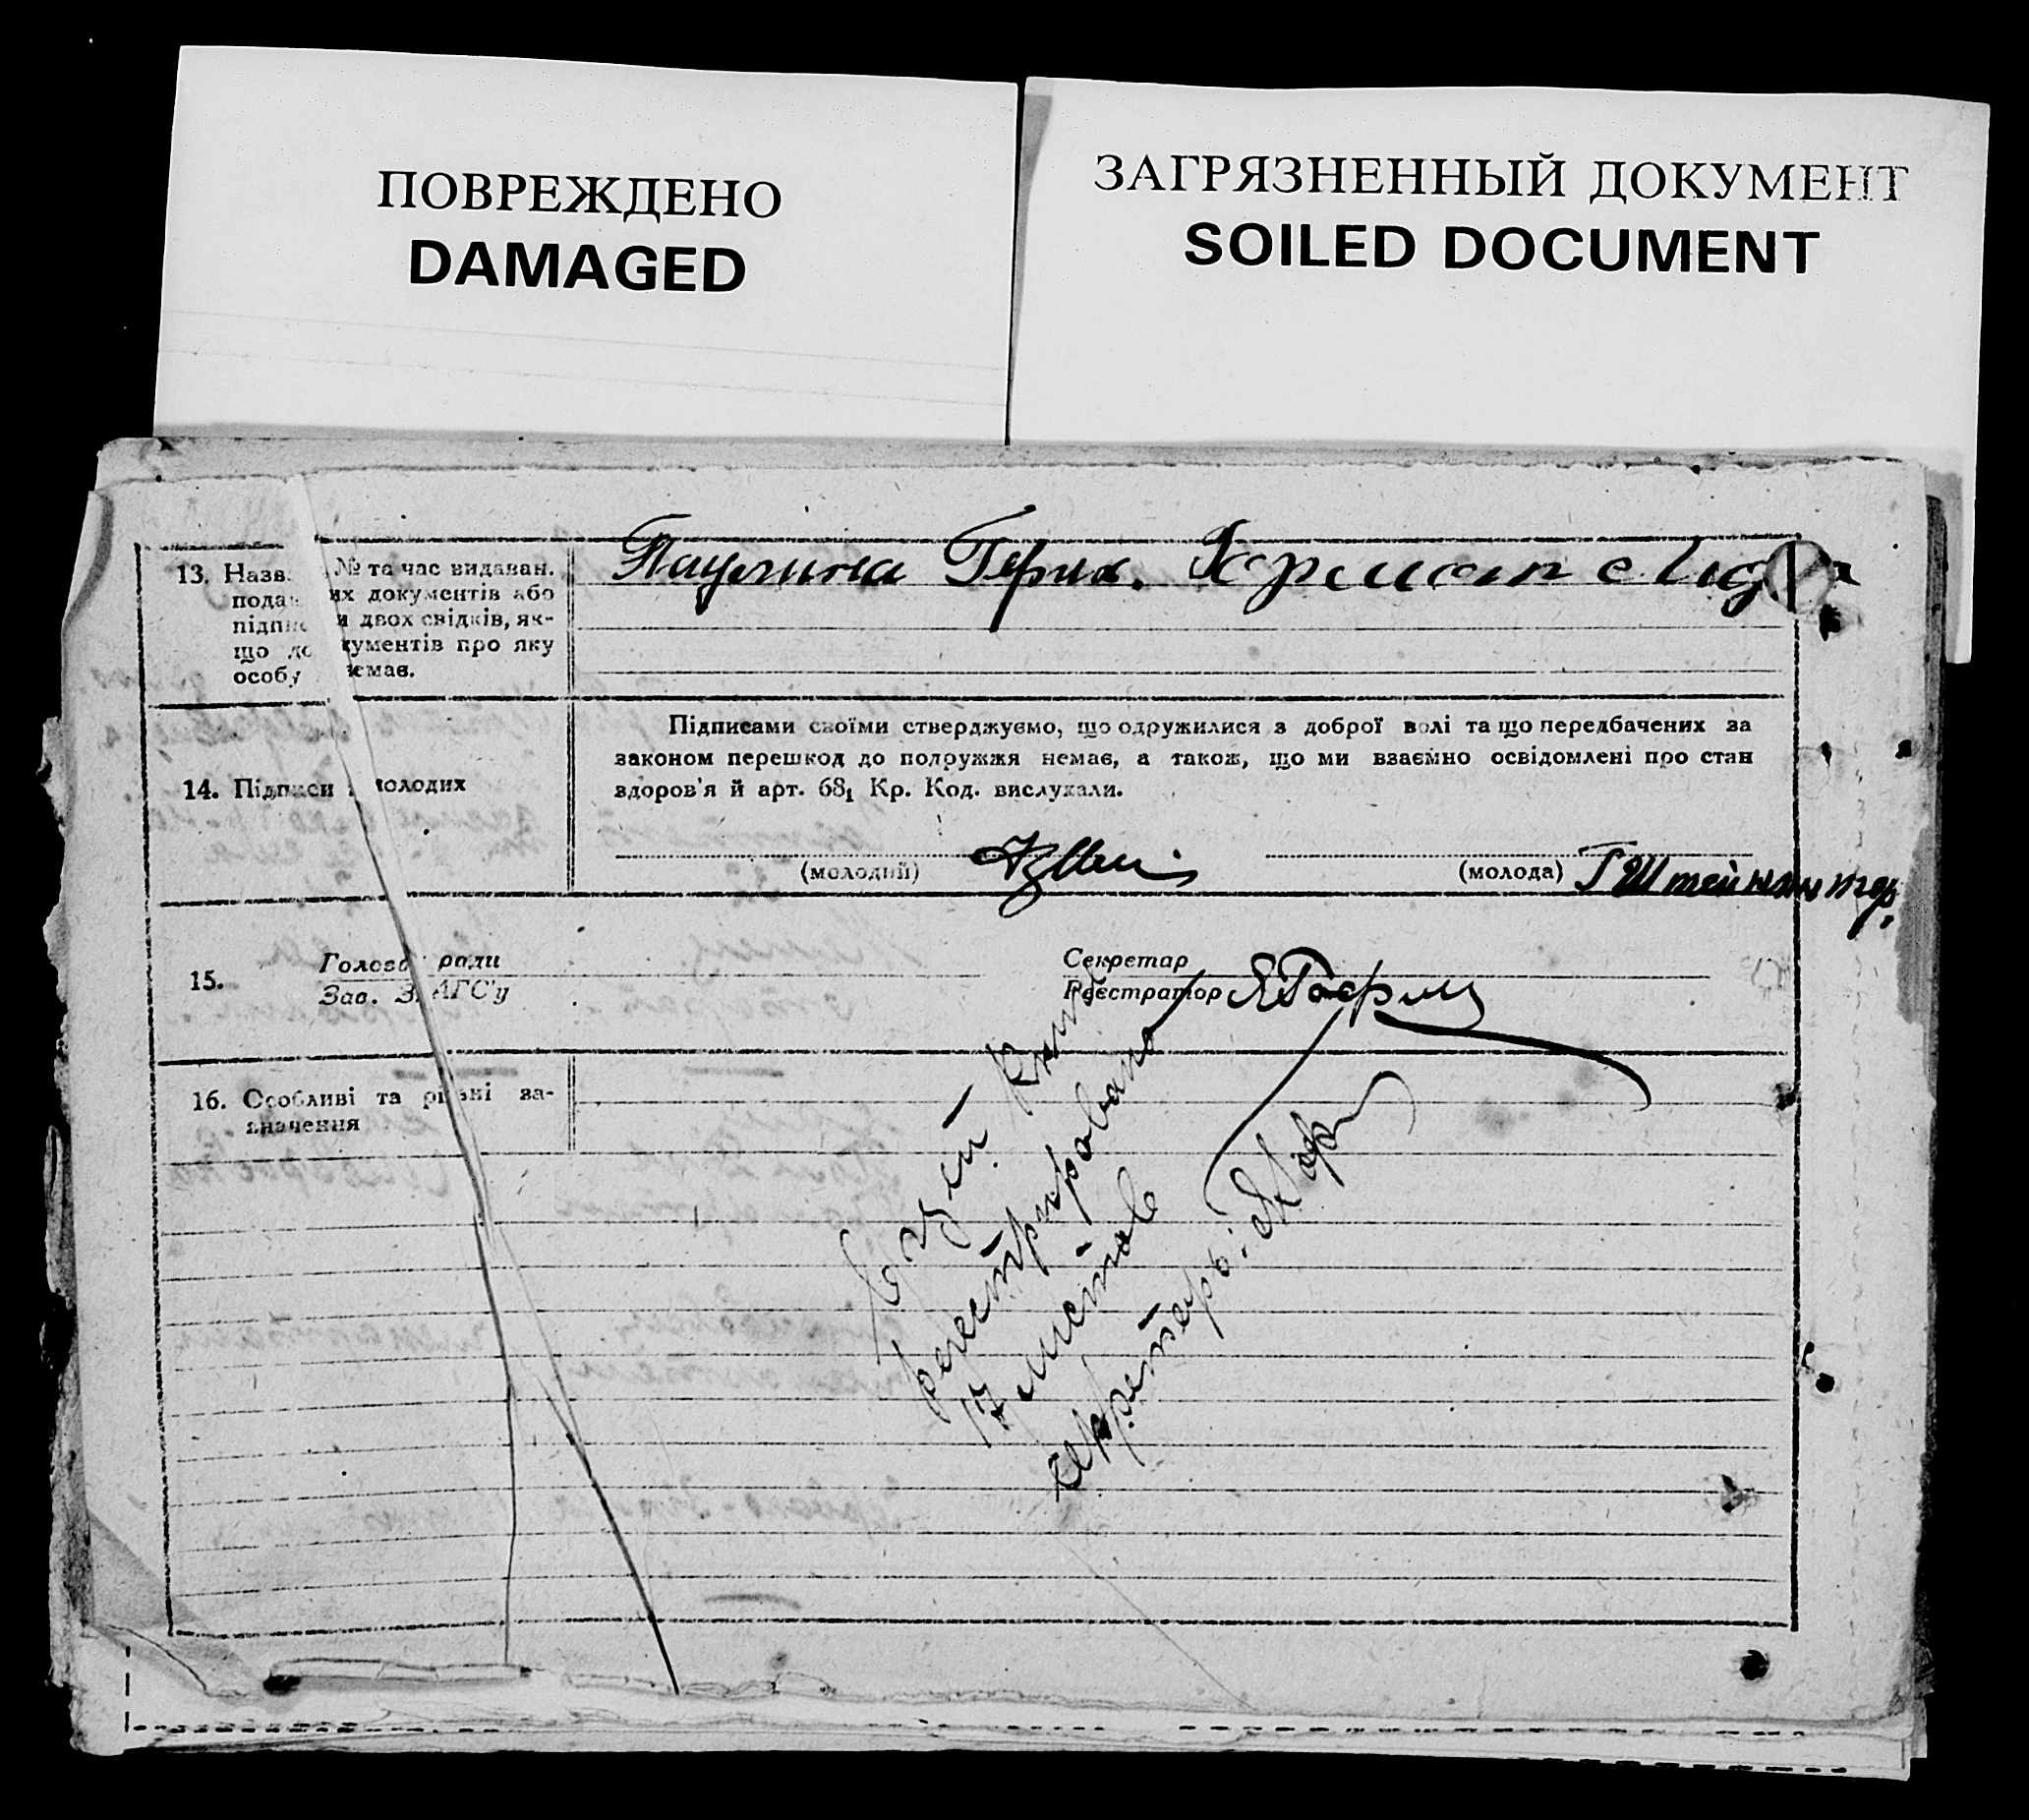 ПОВРЕЖДЕНО
DAMAGED
ЗАГРЯЗНЕННЫЙ ДОКУМЕНТ
SOILED DOCUMENT
13. Назв. № та час видаван.
пода их документів або
підпис и двох свідків, як-
що до кументів про яку
особу немає.
Паулина Герих.
14. Підписи молодих
Підписами своїми стверджуємо, що одружилися з доброї волі та що передбачених за
законом перешкод до подружжя немає, а також, що ми взаємно освідомлені про стан
здоров'я й арт. 68₁ Кр. Код. вислухали.
(молодий)
(молода)
15.
Голова ради
Зав. ЗАГС'у
Секретар
Реєстратор
16. Особливі та різні за-
значення
В цей книг
регестрировано
17 листов
секретарь: